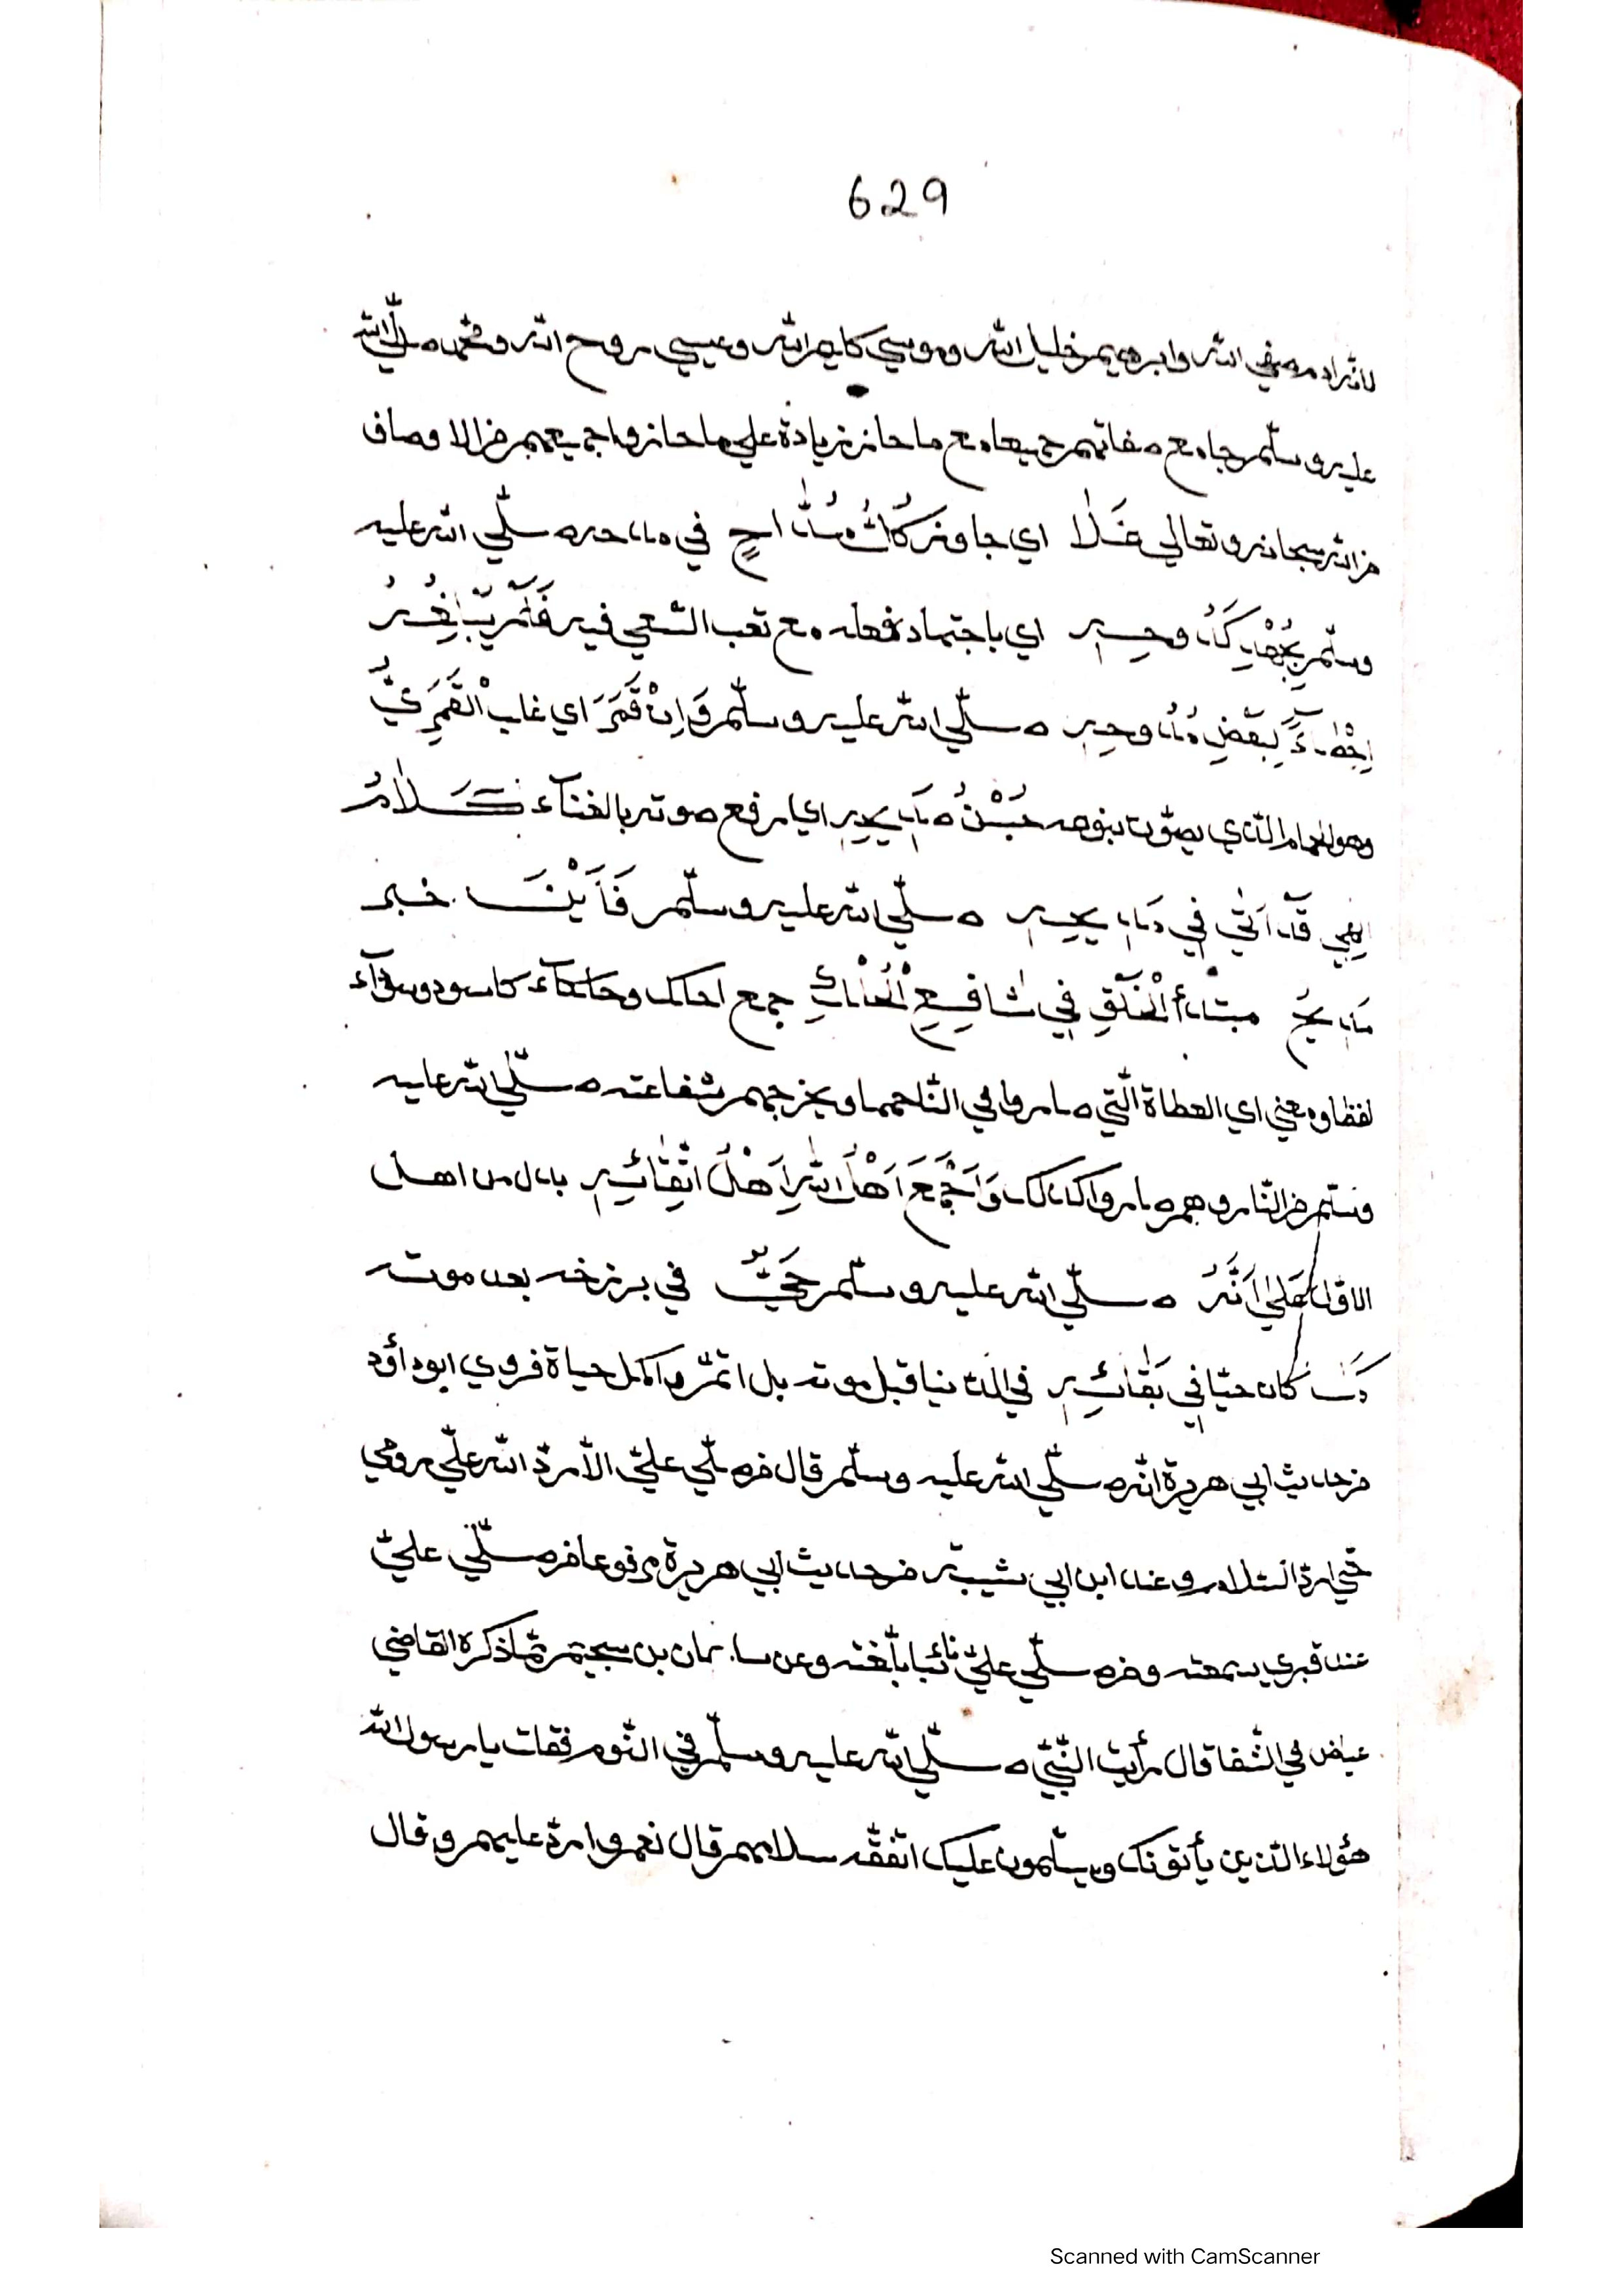 629
لانّ ادم صفي الله وابرهيم خليل الله وموسي كليم الله وعيسي روح الله ومحمّد صلّي الله
عليه وسلّم جامع صفاتهم جميعا مع ما حاز زيادة علي ما حازوا جميعهم من الاوصاف
من الله سبحانه وتعالي غَلَا اي جاوز كُلُّ مدّاحٍ في مدحه صلّي الله عليه
وسلّم بجُهْدِ كدّ وحيه اي باجتهاد فعله مع تعب السّعي فيه فَلَمْ
لبعض وحيه صلّي الله عليه وسلّم وَاِنْ قَمَرَ اي غاب الْقَمَرِيُّ
وهو الحمام الّذي يصوّت بنوحه حُسْنُ مديحه اي رفع صوته بالغنآء كَلَامُ
الهي قد اتي في مديحه صلّي الله عليه وسلّم فَاَيْنَ خبر
مديحُ مبتدأ الْخَلْقِ في شافِعِ جمع وحكآء كاسود وسودآء
لفظا ومعني اي العطاة الّتي صاروا في النّار حمما ويخرجهم بشفاعته صلّي الله عليه
وسلم من النّار وهم صاروا كذلك وَاَجْمَعَ اَهْلُ اللهِ اَهْلُ اتِّقائِهِ بدل من اهل
الاوّل عَلَي اَنَّهُ صلّي الله عليه وسلّم حَيٌّ في برزخه بعد موته
كان حيّا في بَقَائِهِ في الدّنيا قبل موته بل اتمّ واكمل حياة فروي ابوداؤد
من حديث ابي هريرة انّه صلّي الله عليه وسلّم قال من صلّي عليّ الّا ردّ الله عليّ روحي
حتّي اردّ السّلام وعند ابن ابي شيبة من حديث ابي هريرة مرفوعا من صلّي عليّ
عند قبري سمعته ومن صلّي عليّ نائيا بلّغته وعن سليمان بن سحيم ممّا ذكره القاضي
عياض في الشّفا قال رأيت النّبيّ صلّي الله عليه وسلّم في النّوم فقلت يا رسول الله
هؤلاء الّذين يأتونك ويسلّمون عليك اتفقه سلامهم قال نعم واردّ عليهم وقال
Scanned with CamScanner